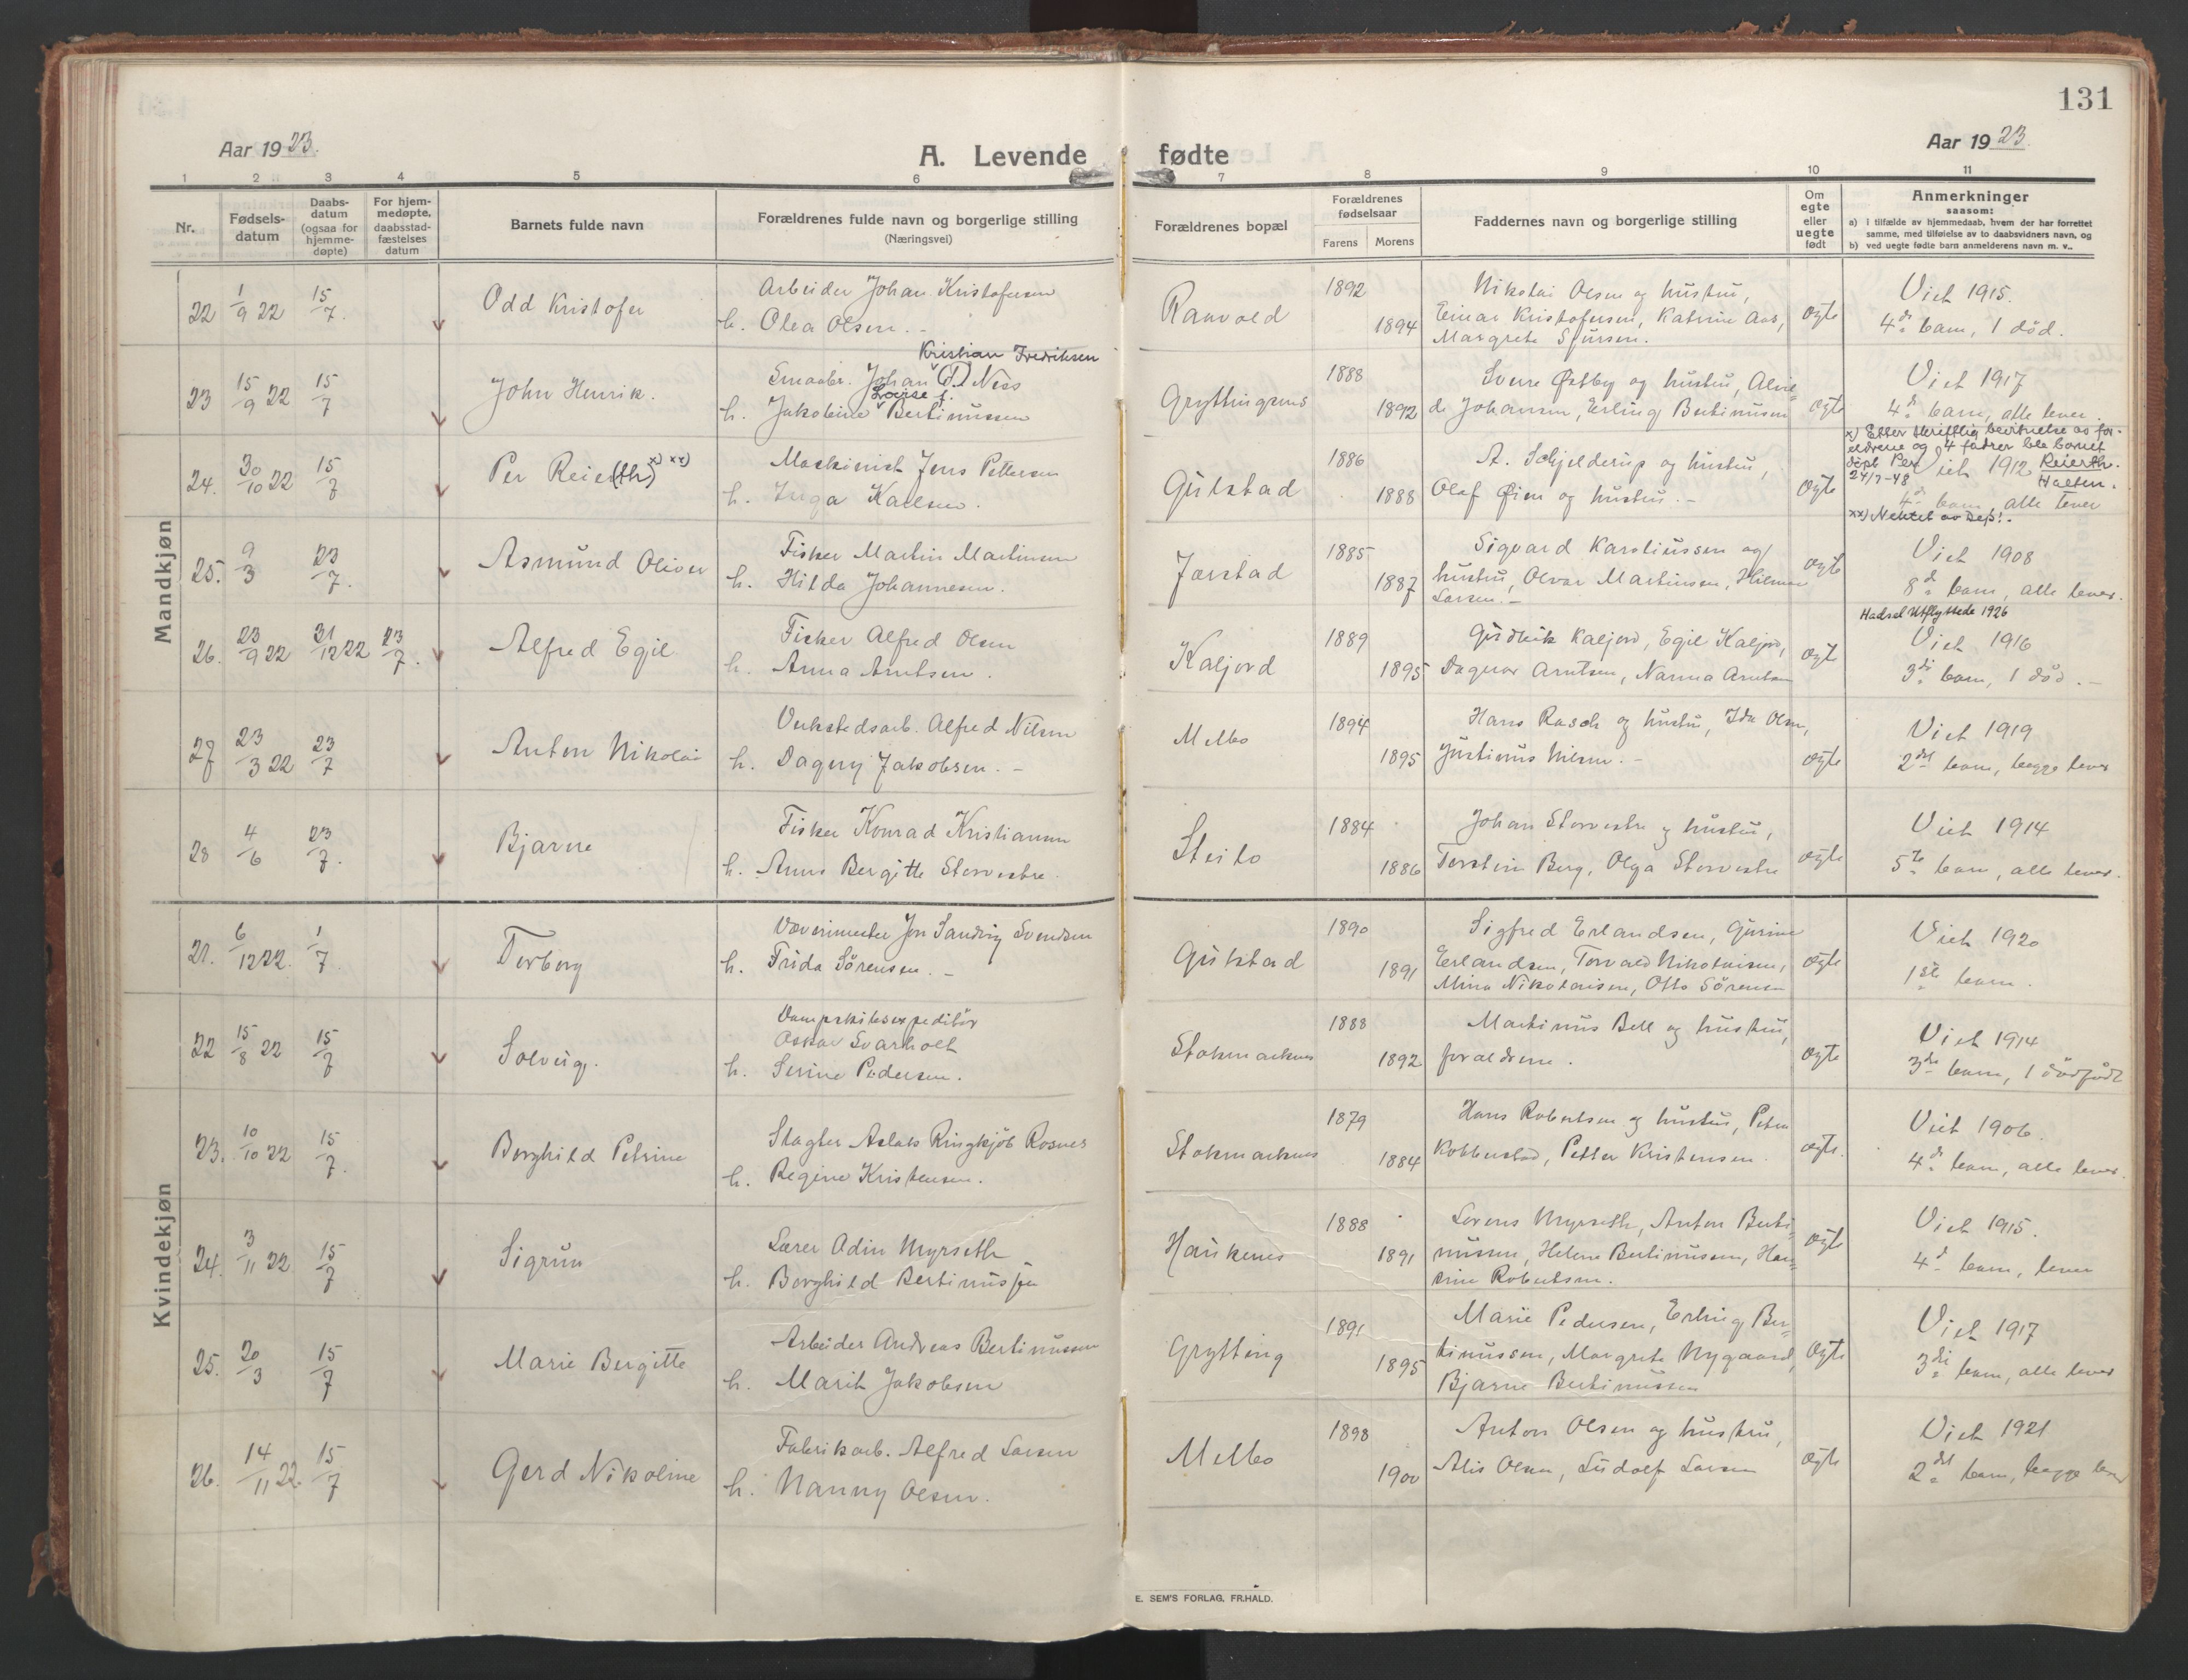 131
Aar 1923.
A. Levende fødte
Aar 1923.
1 2 3 4 5 6 7 8 9 10 11
Nr.
Fødsels-
datum
Daabs-
datum
(ogsaa for
hjemme-
døpte)
For hjem-
medøpte,
daabsstad-
fæstelses
datum
Barnets fulde navn
Forældrenes fulde navn og borgerlige stilling
(Næringsvei)
Forældrenes bopæl
Forældrenes
fødselsaar
Farens Morens
Faddernes navn og borgerlige stilling
Om
egte
eller
uegte
født
Anmerkninger
saasom:
a) i tilfælde av hjemmedaab, hvem der har forrettet
samme, med tilføielse av to daabsvidners navn, og
b) ved uegte fødte barn anmelderens navn m. v..
Mandkjøn
22 1/9 22 15/7. Odd Kristofer Arbeider Johan Kristofersen
h. Olea Olsen. - Ranvold 1892 1894 Nikolai Olsen og hustru,
Einar Kristofersen, Katrine Aas,
Margrete Sjursen. ægte Viet 1915.
4de barn, 1 död.
23 15/9 22 15/7 John Henrik. Kristian Fredriksen
Smaabr. Johan (F.) Ness
Lovise f.
h. Jakobine Bertinussen Gryttingsnes 1888 1892 Sverre Østby og hustru, Alvil-
de Johansen, Erling Bertinussen ægte Viet 1917
4de barn, alle lever.
24. 30/10 22 15/7 Per Reier(th) x) xx) Maskinist Jens Pettersen
h. Inga Karlsen. Gulstad 1886 1888 A. Schjelderup og hustru,
Olaf Øien og hustru. - ægte x) Etter skriftlig bevitnelse av for-
eldrene og 4 fadrer ble barnet
döpt Per Reierth.
24/7-48 Halten.
Viet 1912
4de barn alle lever
xx) Nektet av Dep!.
25. 9/3 23/7. Asmund Oliver Fisker Martin Martinsen
h. Hilda Johannesen. Jørstad 1885 1887 Sigvard Karoliussen og
hustru, Olvar Martinsen, Hilmar
Larsen. - ægte Viet 1908
8de barn, alle lever.
26. 23/9 22 31/12 22 23/7. Alfred Egil Fisker Alfred Olsen
h. Anna Arntsen. Kaljord 1889 1895 Gudleik Kaljord, Egil Kaljord,
Dagmar Arntsen, Nanna Arntsen ægte Hadsel Utflyttede 1926
Viet 1916
3die barn, 1 död. -
27 23/3 22 23/7 Anton Nikolai Verkstedsarb. Alfred Nilsen
h. Dagny Jakobsen. - Melbo 1894 1895 Hans Rasch og hustru, Ida Olsen,
Justinus Nilsen. - ægte Viet 1919
2det barn, begge lever
28 4/6 23/7. Bjarne Fisker Konrad Kristiansen
h. Anna Bergitte Storvestre. Steilo 1884 1886 Johan Storvestre og hustru,
Torstein Berg, Olga Storvestre ægte Viet 1914
5te barn, alle lever.
Kvindekjøn
21. 6/12 22. 1/7. Torborg Værermester Jon Sandvig Svendsen
h. Frida Sörensen. - Gulstad 1890 1891 Sigfred Erlandsen, Gurine
Erlandsen, Torvald Nikolaisen,
Mina Nikolaisen, Otto Sörensen ægte Viet 1920
1ste barn.
22 15/8 22 15/7 Solveig. Dampskibsexpeditör
Oskar Svarholt
h. Serine Pedersen. Stokmarknes 1888 1892 Martinus Bell og hustru,
forældrene. ægte Viet 1914
3die barn, 1 dödfödt
23. 10/10 22 15/7. Borghild Petrine Slagter Aslak Ringkjöb Rosnes
h. Regine Kristensen. Stokmarknes 1879 1884 Hans Robertsen og hustru, Peter
Kobberstad, Petter Kristensen. ægte. Viet 1906.
4de barn, alle lever.
24. 3/11 22 15/7 Sigrun Lærer Odin Myrseth
h. Borghild Bertinussen Haukenes 1888 1891 Lorens Myrseth, Anton Berti-
nussen, Helene Bertinussen, Han-
sine Robertsen. ægte Viet 1915.
4de barn, lever
25. 20/3 15/7 Marie Bergitte Arbeider Andreas Bertinussen
h. Marit Jakobsen Grytting 1891 1895 Marie Pedersen, Erling Ber-
tinussen, Margrete Nygaard,
Bjarne Bertinussen ægte Viet 1917
3die barn, alle lever
26. 14/11 22. 15/7 Gerd Nikoline Fabrikarb. Alfred Larsen
h. Nanny Olsen. Melbo 1898 1900 Anton Olsen og hustru,
Alis Olsen, Ludolf Larsen ægte Viet 1921
2det barn, begge lever
E. SEM'S FORLAG. FR.HALD.